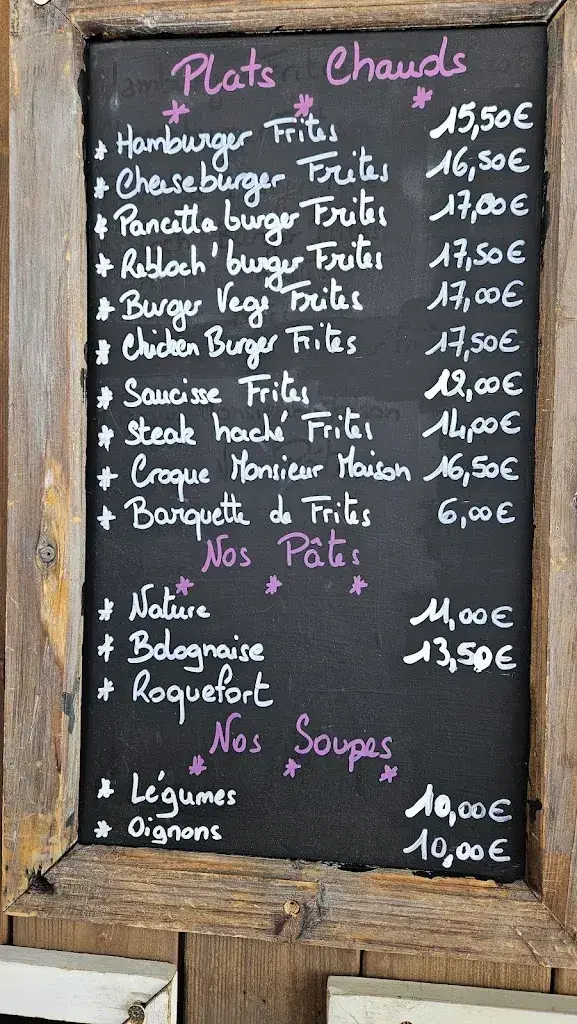 Plats Chauds
* * *
* Hamburger Frites 15,50€
* Cheeseburger Frites 16,50€
* Pancetta burger Frites 17,00€
* Rebloch' burger Frites 17,50€
* Burger Vegi Frites 17,00€
* Chicken Burger Frites 17,50€
* Saucisse Frites 12,00€
* Steak haché Frites 14,00€
* Croque Monsieur Maison 16,50€
* Barquette de Frites 6,00€
Nos Pâtes
* * *
* Nature 11,00€
* Bolognaise 13,50€
* Roquefort
Nos Soupes
* * *
* Légumes 10,00€
* Oignons 10,00€